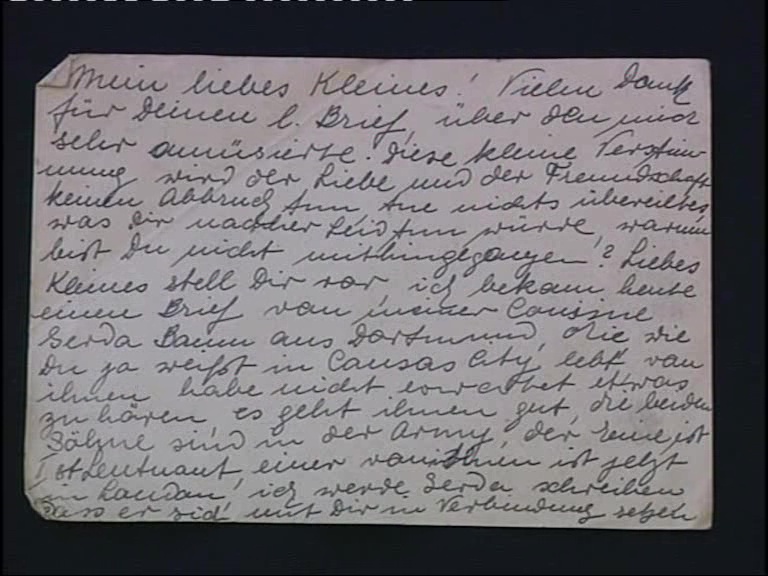 Mein liebes Kleines! Vielen Dank
für Deinen l. Brief, über den mich
sehr amüsierte. Diese kleine Verstim-
mung wird der Liebe und der Freundschaft
keinen Abbruch tun tue nichts übereiltes
was Dir nachher Leid tun würde, warum
bist Du nicht mithingegangen? Liebes
Kleines stell Dir vor ich bekam heute
einen Brief von meiner Cousine
Gerda Baum aus Dortmund, die wie
Du ja weißt in Cansas City lebt von
ihnen habe nicht erwartet etwas
zu hören es geht ihnen gut, die beiden
Söhne sind in der Army, der eine ist
I st Leutnant einer von ihnen ist jetzt
in London, ich werde Gerda schreiben
dass er sich mit Dir in Verbindung setzen